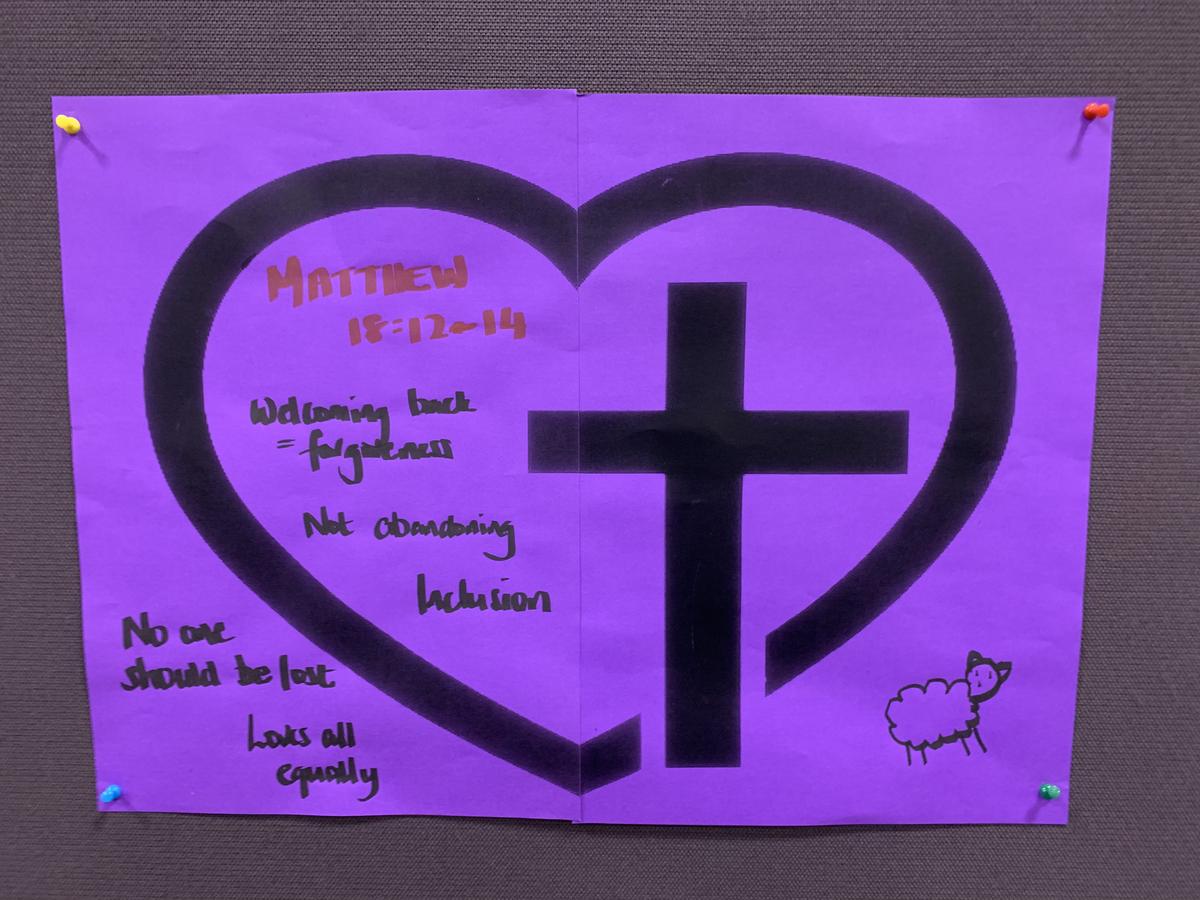 MATTHEW
18:12-14
Welcoming back
= forgiveness
Not abandoning
Inclusion
No one
should be lost
Loves all
equally